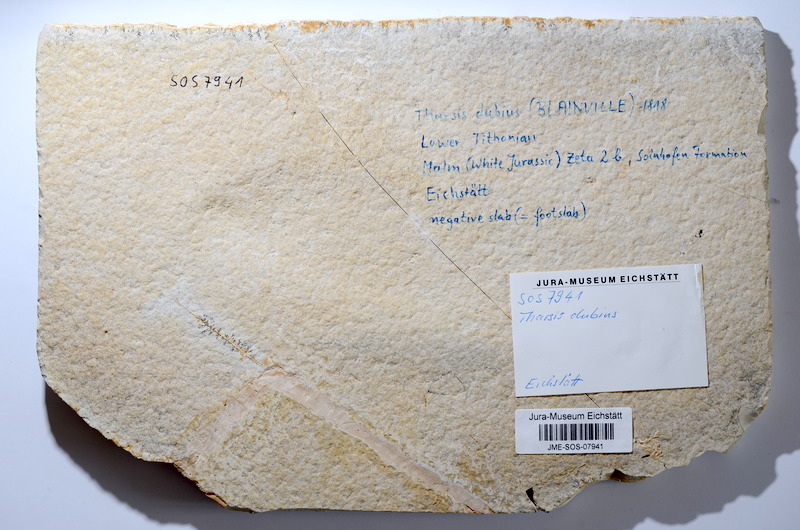 SOS 7941
Tharsis dubius (BLAINVILLE) 1818
Lower Tithonian
Malm (White Jurassic) Zeta 2 b, Solnhofen Formation
Eichstätt
negative slab (= footslab)
JURA-MUSEUM EICHSTÄTT
SOS 7941
Tharsis dubius
Eichstätt
Jura-Museum Eichstätt
JME-SOS-07941